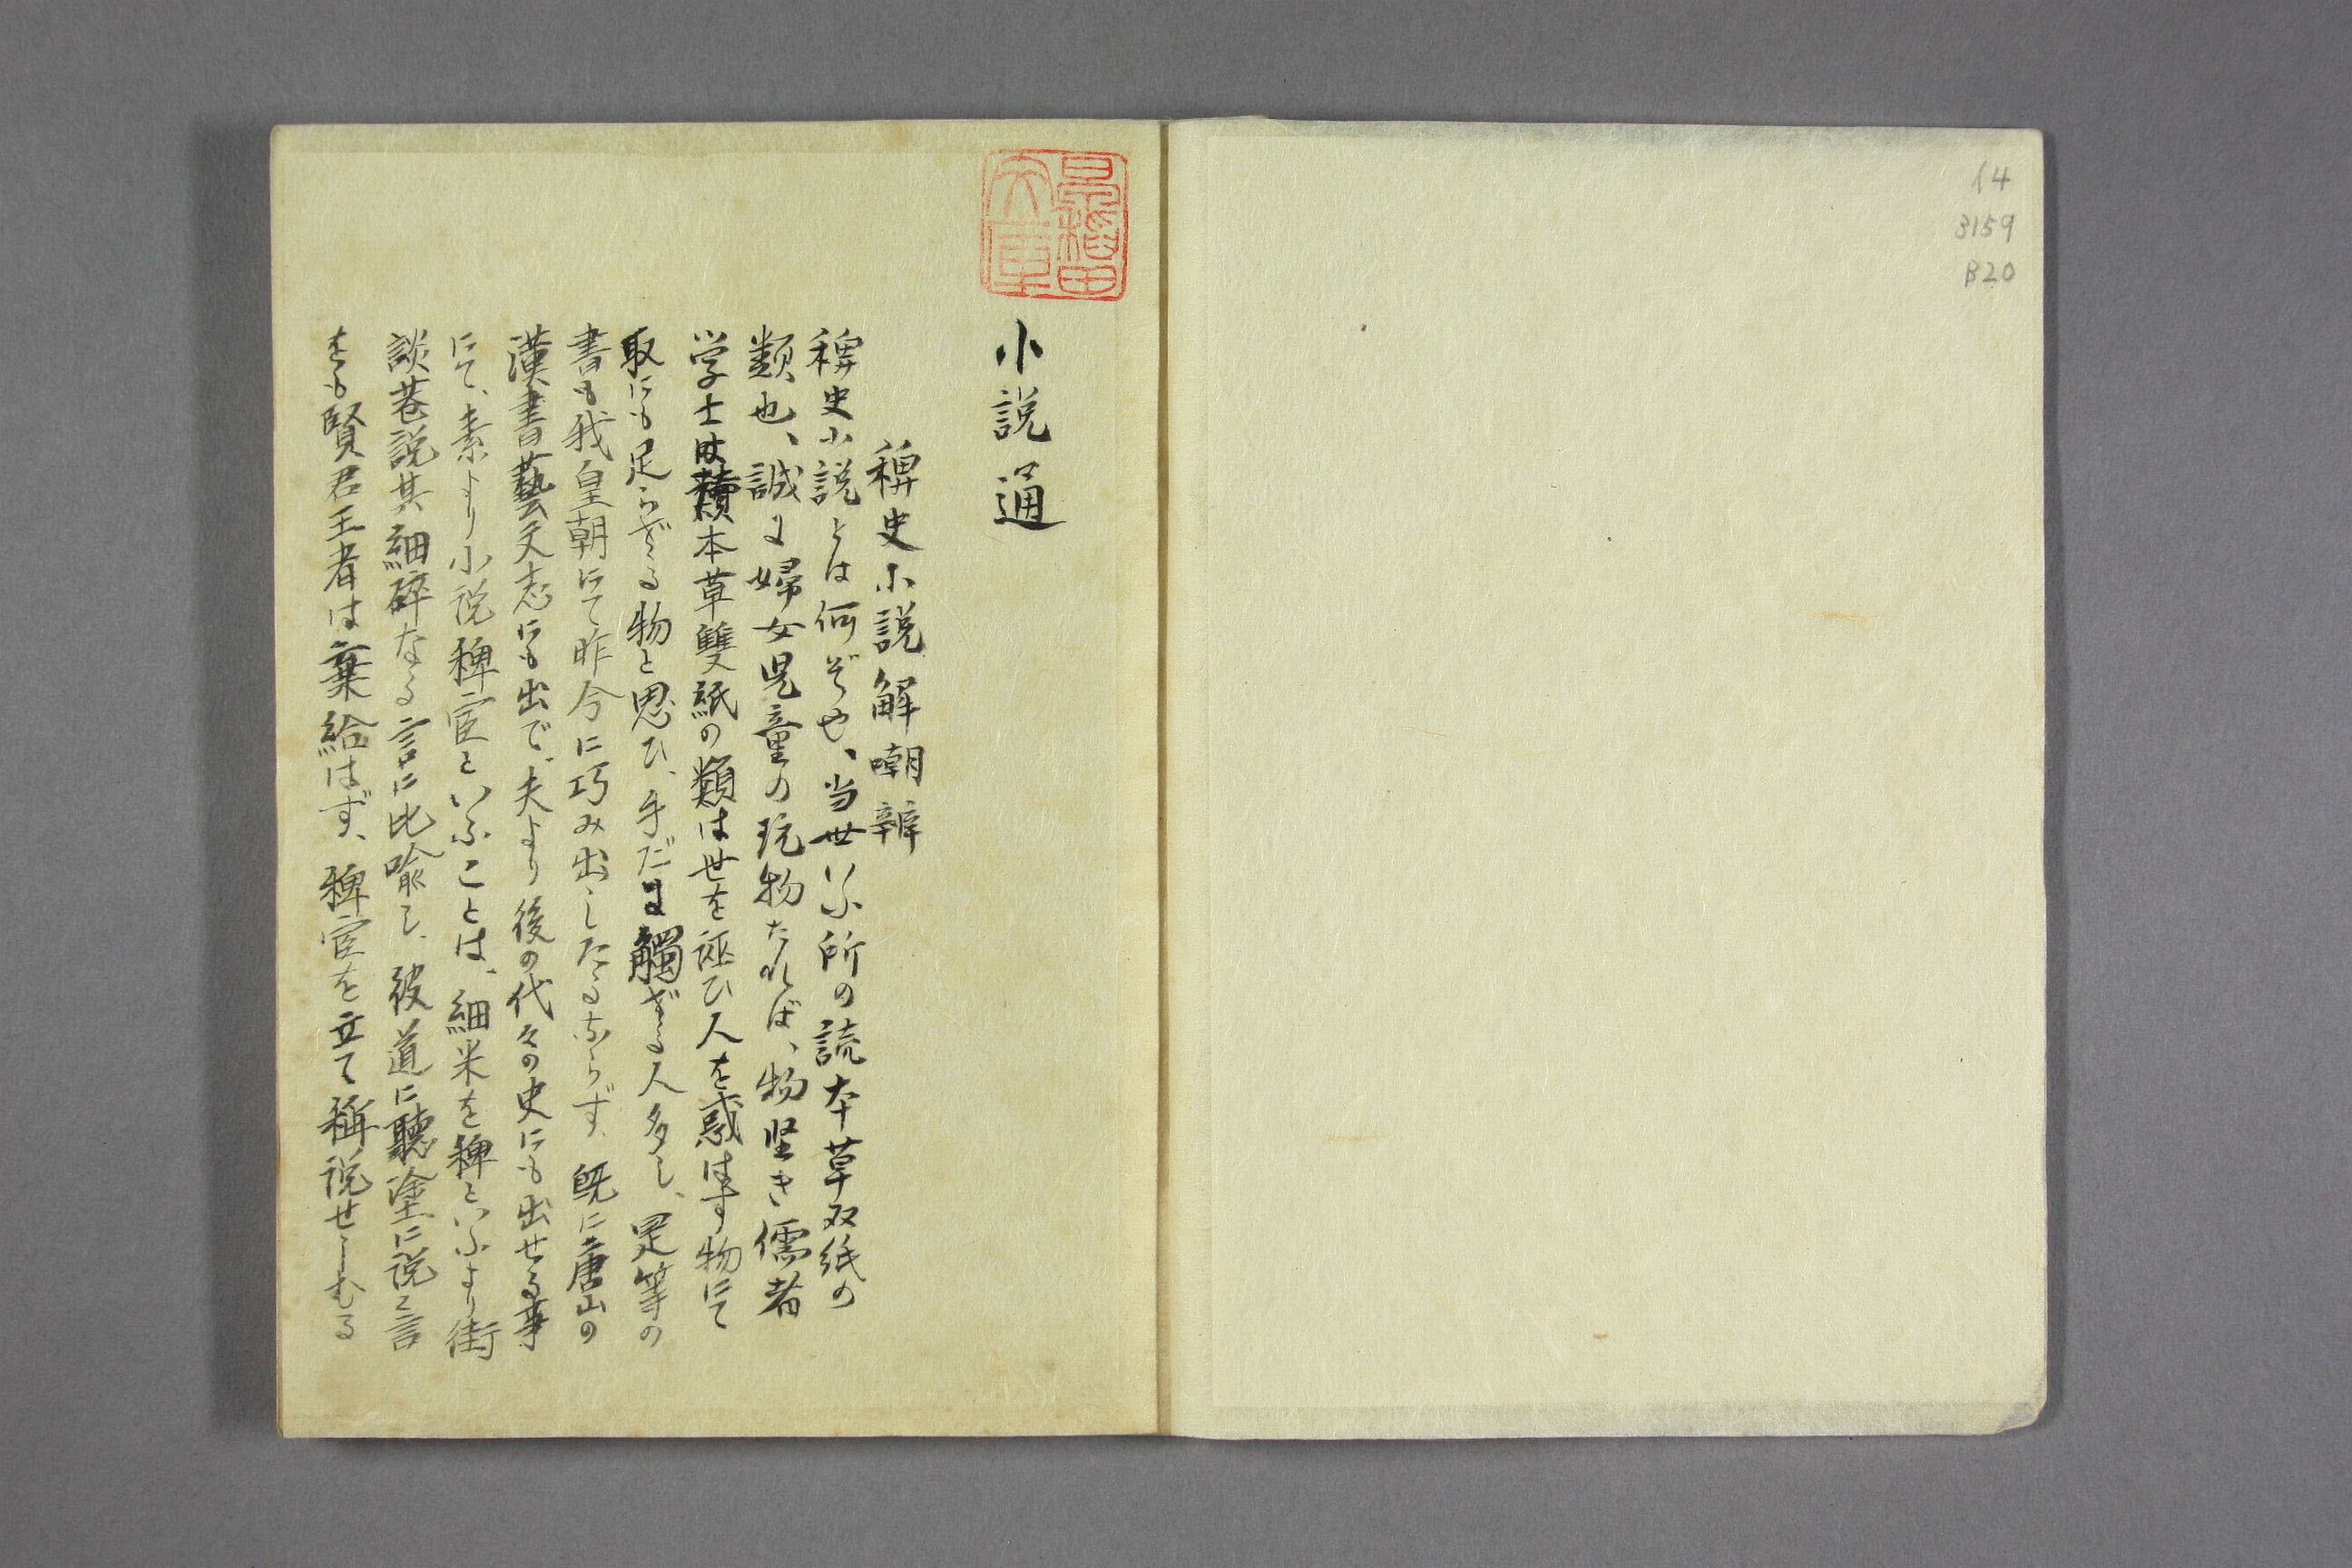 イ4
3159
B20
早稲田
文庫
小説通
稗史小説解嘲辨
稗史小説とは何ぞや、当世いふ所の読本草双紙の
類也、誠に婦女児童の玩物たれば、物堅き儒者
学士は讀本草雙紙の類は世を誣ひ人を惑はす物にて
取にも足らざる物と思ひ、手だに觸ざる人多し、是等の
書も我皇朝にて昨今に巧み出したるならず、既に唐山の
漢書藝文志にも出で、夫より後の代々の史にも出せる事
にて、素より小説稗官といふことは、細米を稗といふより街
談巷説其細碎なる言に比喩し、彼道に聽塗に説く言
をも賢君王者は棄給はず、稗官を立て稱説せしむる